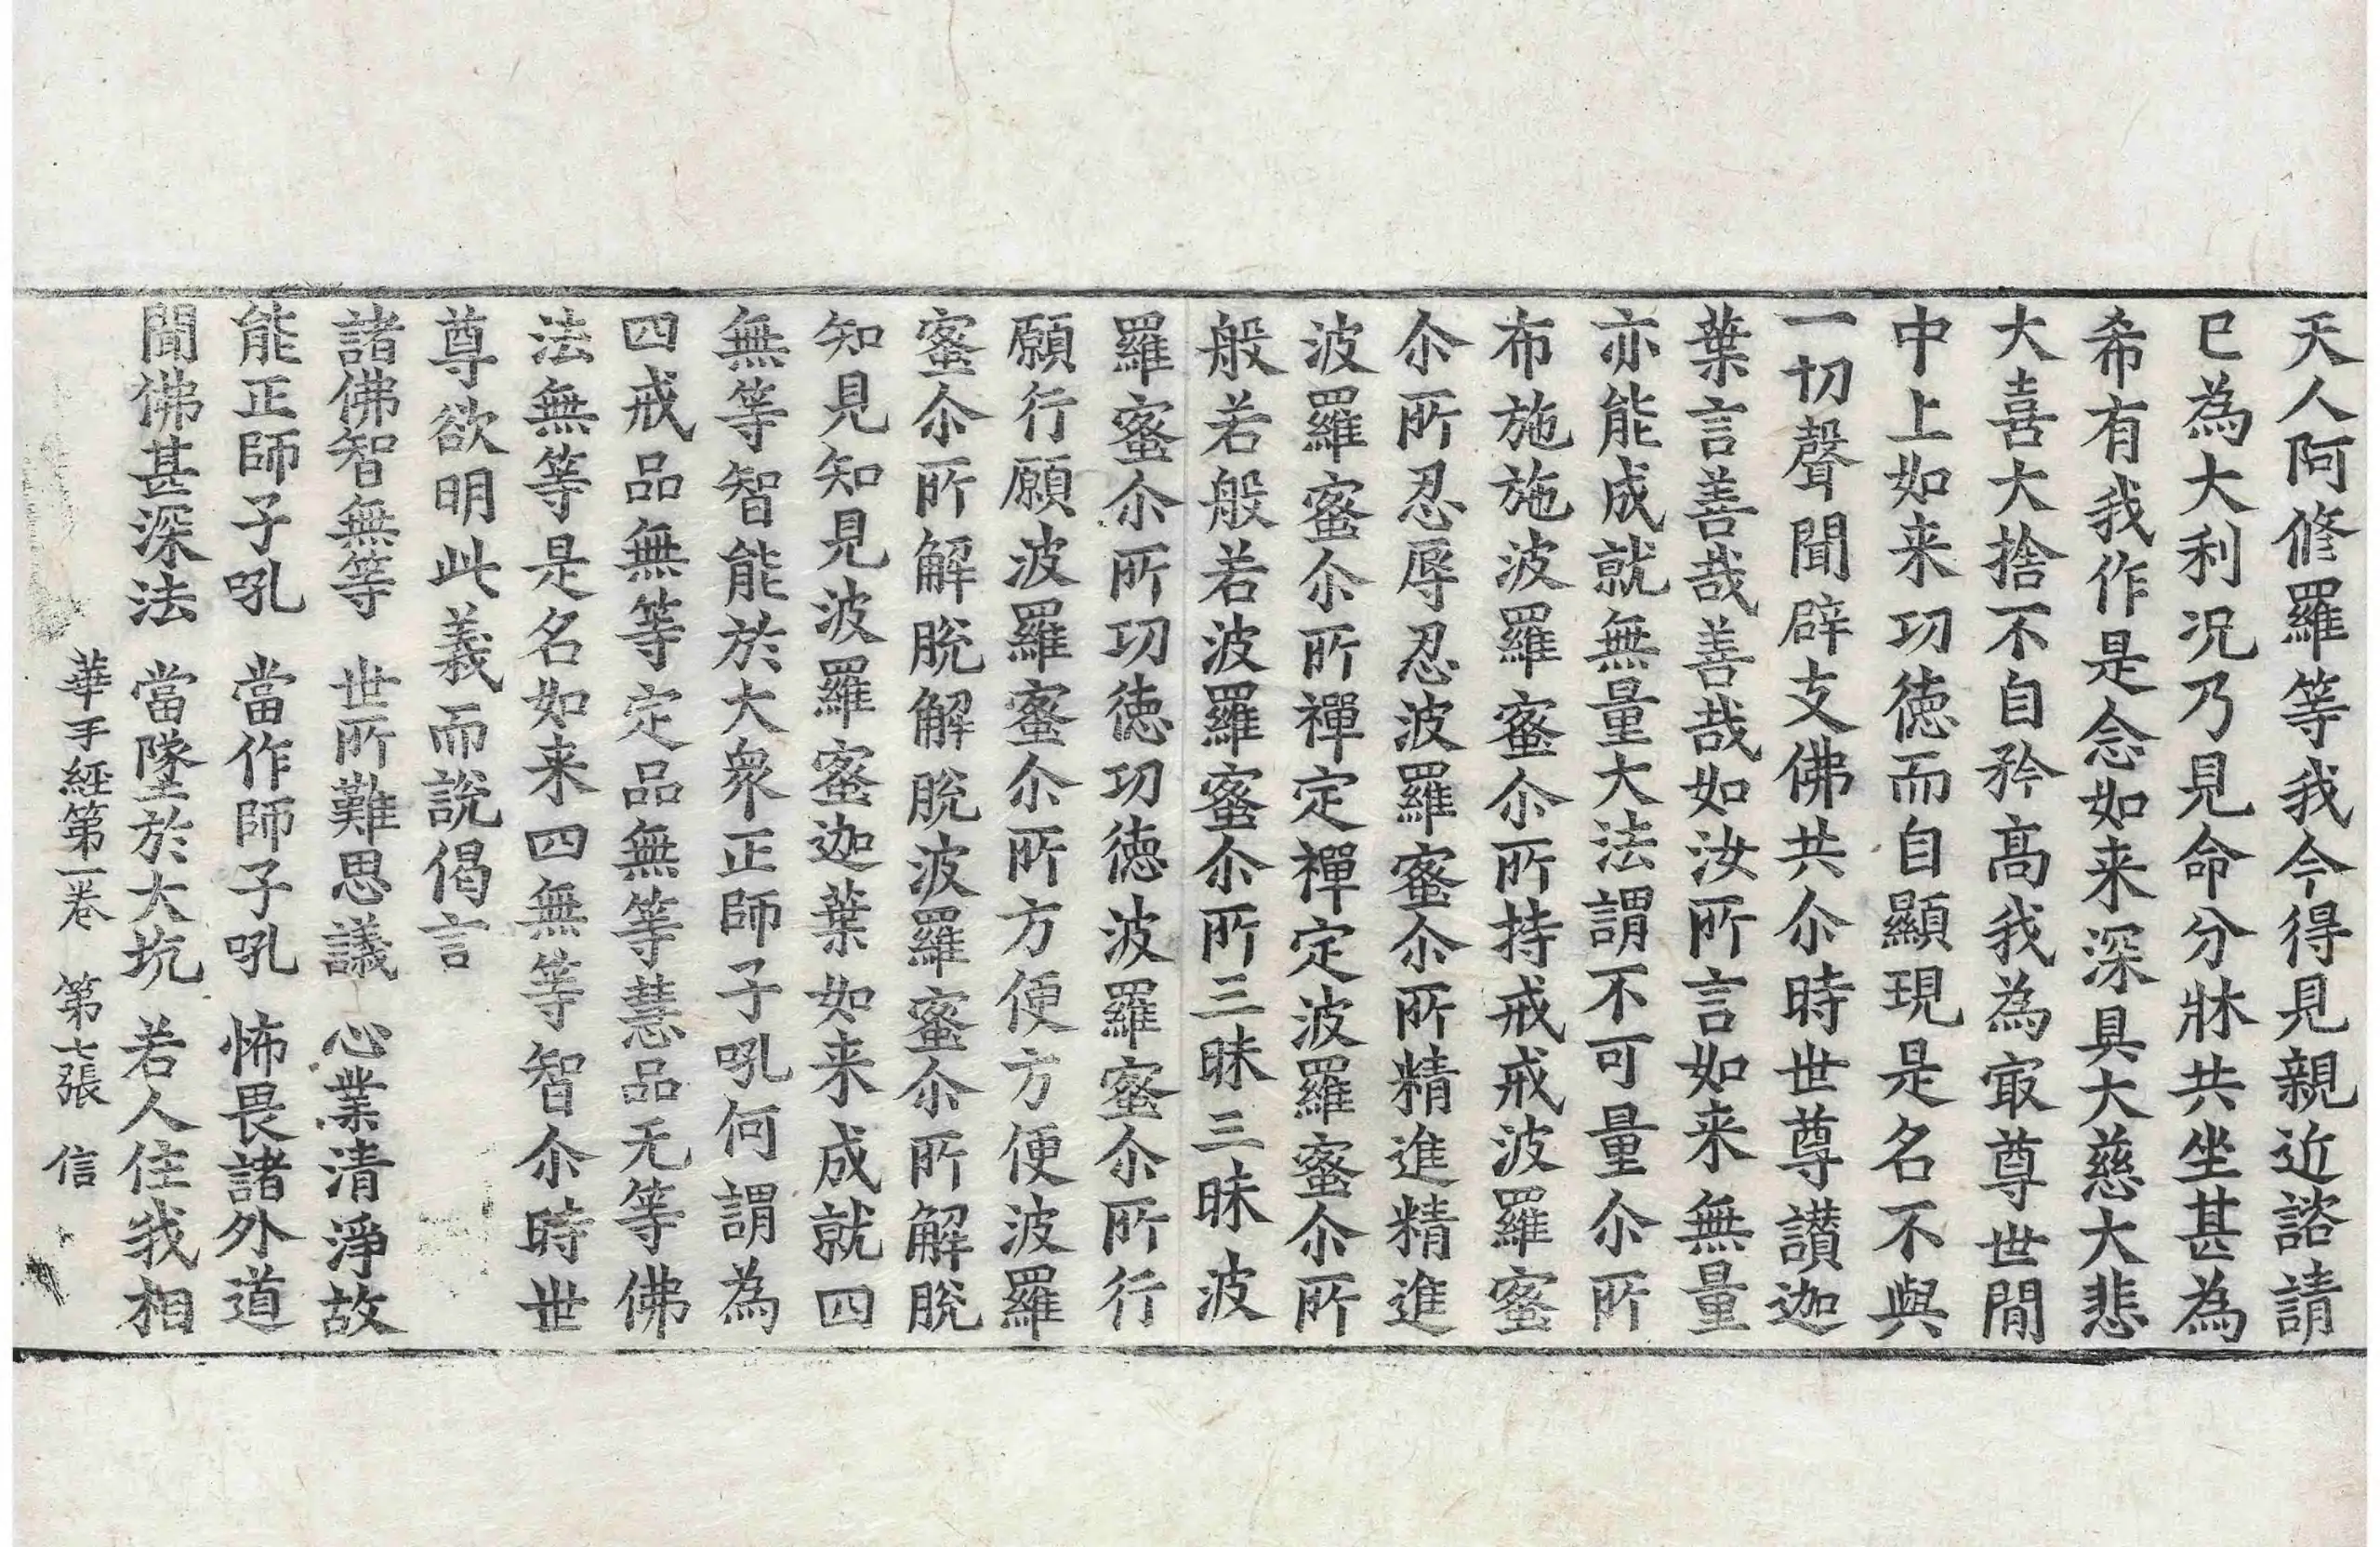 天人阿修羅等我今得見親近諮請
已為大利况乃見命分牀共坐甚為
希有我作是念如来深具大慈大悲
大喜大捨不自矜髙我為㝡尊世間
中上如来功徳而自顯現是名不與
一切聲聞辟支佛共尒時世尊讃迦
葉言善哉善哉如汝所言如来無量
亦能成就無量大法謂不可量尒所
布施施波羅蜜尒所持戒戒波羅蜜
尒所忍辱忍波羅蜜尒所精進精進
波羅蜜尒所禪定禪定波羅蜜尒所
般若般若波羅蜜尒所三昧三昧波
羅蜜尒所功徳功徳波羅蜜尒所行
願行願波羅蜜尒所方便方便波羅
蜜尒所解脫解脫波羅蜜尒所解脫
知見知見波羅蜜迦葉如来成就四
無等智能於大衆正師子吼何謂為
四戒品無等定品無等慧品无等佛
法無等是名如来四無等智尒時世
尊欲明此義而說偈言
諸佛智無等　世所難思議　心業清淨故
能正師子吼　當作師子吼　怖畏諸外道
聞佛甚深法　當墜於大坑　若人住我相
華手經第一卷　第七張　信